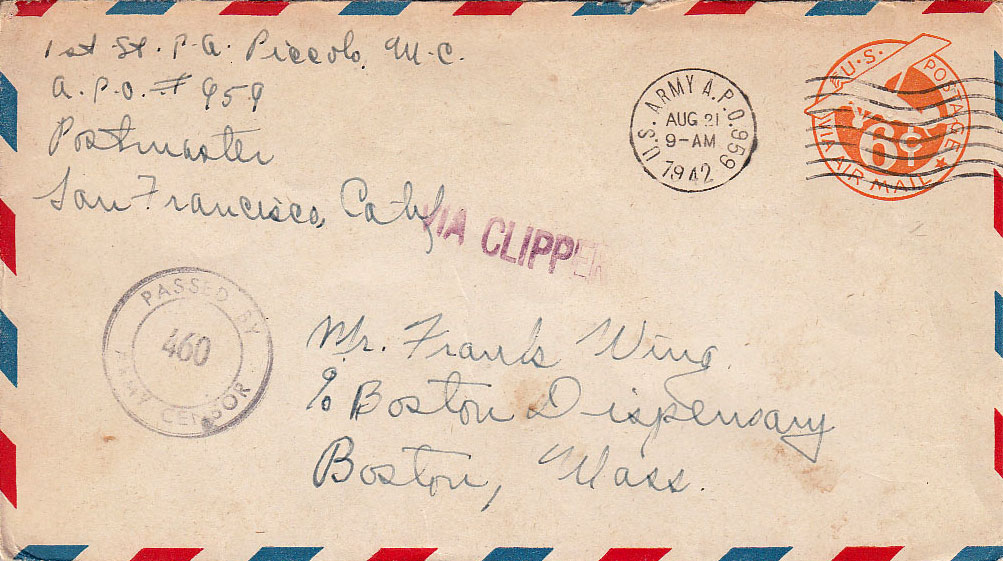 1st Lt. P.A. Piccolo, M.C.
A.P.O. # 959
Postmaster
San Francisco, Calif
U.S. ARMY A.P.O. 959
AUG 21
9-AM
1942
U.S. POSTAGE
6¢
VIA AIR MAIL
VIA CLIPPER
PASSED BY
460
ARMY CENSOR
Mr. Frank Wing
c/o Boston Dispensary
Boston, Mass.